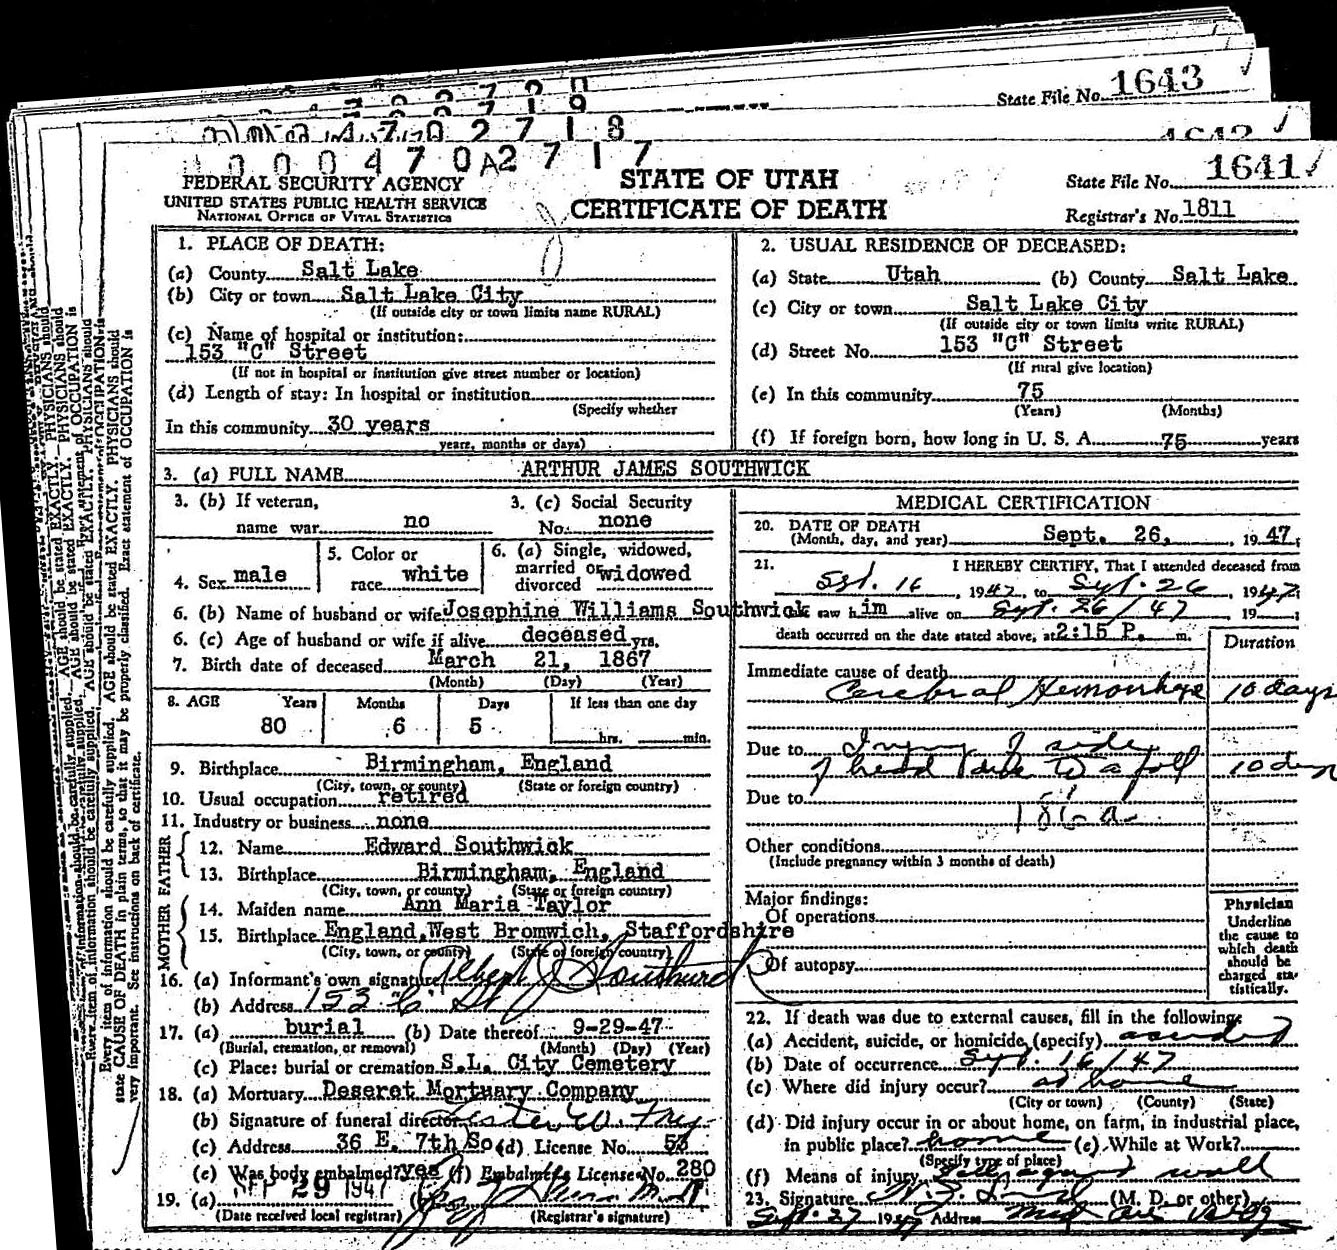 State File No. 1643
1642
0 0 0 4 7 0 2 7 1 8
0 0 0 4 7 0 2 7 1 7
1641
FEDERAL SECURITY AGENCY
UNITED STATES PUBLIC HEALTH SERVICE
NATIONAL OFFICE OF VITAL STATISTICS
STATE OF UTAH
CERTIFICATE OF DEATH
State File No.
Registrar's No. 1811
1. PLACE OF DEATH:
(a) County Salt Lake
(b) City or town Salt Lake City
(If outside city or town limits name RURAL)
(c) Name of hospital or institution:
153 "C" Street
(If not in hospital or institution give street number or location)
(d) Length of stay: In hospital or institution
(Specify whether
In this community 30 years
years, months or days)
2. USUAL RESIDENCE OF DECEASED:
(a) State Utah (b) County Salt Lake
(c) City or town Salt Lake City
(If outside city or town limits write RURAL)
(d) Street No. 153 "C" Street
(If rural give location)
(e) In this community 75
(Years) (Months)
(f) If foreign born, how long in U. S. A. 75 years
3. (a) FULL NAME ARTHUR JAMES SOUTHWICK
3. (b) If veteran,
name war no
3. (c) Social Security
No. none
4. Sex male
5. Color or
race white
6. (a) Single, widowed,
married or
divorced widowed
6. (b) Name of husband or wife Josephine Williams Southwick
6. (c) Age of husband or wife if alive deceased yrs.
7. Birth date of deceased March 21, 1867
(Month) (Day) (Year)
8. AGE Years Months Days If less than one day
80 6 5 hrs. min.
9. Birthplace Birmingham, England
(City, town, or county) (State or foreign country)
10. Usual occupation retired
11. Industry or business none
FATHER
12. Name Edward Southwick
13. Birthplace Birmingham, England
(City, town, or county) (State or foreign country)
MOTHER
14. Maiden name Ann Maria Taylor
15. Birthplace England, West Bromwich, Staffordshire
(City, town, or county) (State or foreign country)
16. (a) Informant's own signature Albert J Southwick
(b) Address 153 C St
17. (a) burial (b) Date thereof 9-29-47
(Burial, cremation, or removal) (Month) (Day) (Year)
(c) Place: burial or cremation S.L. City Cemetery
18. (a) Mortuary Deseret Mortuary Company
(b) Signature of funeral director
(c) Address 36 E. 7th So (d) License No. 53
(e) Was body embalmed? yes (f) Embalmer's License No. 280
19. (a) SEP 29 1947
(Date received local registrar) (Registrar's signature)
MEDICAL CERTIFICATION
20. DATE OF DEATH
(Month, day, and year) Sept. 26, 1947;
21. I HEREBY CERTIFY, That I attended deceased from
Sept. 16, 1947, to Sept. 26, 1947
saw him alive on Sept. 26/47 19
death occurred on the date stated above, at 2:15 P. m.
Duration
Immediate cause of death
Cerebral Hemorrhage 10 days
Due to Injury of side
of head due to a fall 10 days
Due to
186a
Other conditions
(Include pregnancy within 3 months of death)
Major findings:
Of operations
Of autopsy
Physician
Underline
the cause to
which death
should be
charged sta-
tistically.
22. If death was due to external causes, fill in the following:
(a) Accident, suicide, or homicide (specify) accident
(b) Date of occurrence Sept. 16/47
(c) Where did injury occur? at home
(City or town) (County) (State)
(d) Did injury occur in or about home, on farm, in industrial place,
in public place? home (e) While at Work?
(Specify type of place)
(f) Means of injury against wall
23. Signature (M. D. or other)
Sept. 27 1947 Address
Every item of information should be carefully supplied. AGE should be stated EXACTLY. PHYSICIANS should
state CAUSE OF DEATH in plain terms, so that it may be properly classified. Exact statement of OCCUPATION is
very important. See instructions on back of certificate.